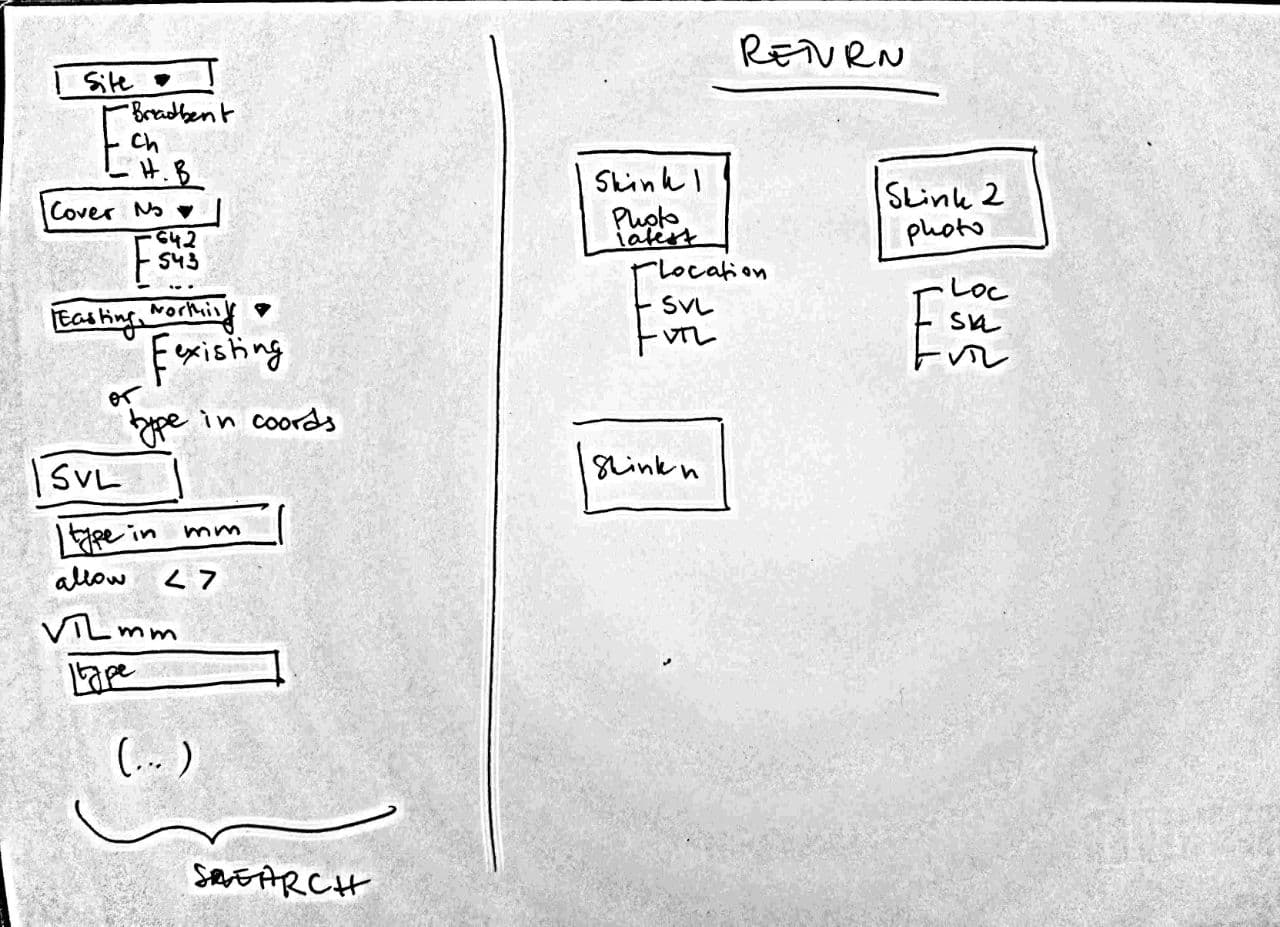 Site
Broadbent
Ch
H.B
Cover No
S42
S43
...
Easting, Northing
existing
or
type in coords
SVL
type in mm
allow < >
VTL mm
type
(...)
SEARCH
RETURN
Skink 1
Photo
latest
Location
SVL
VTL
Skink 2
photo
Loc
SVL
VTL
Skink n